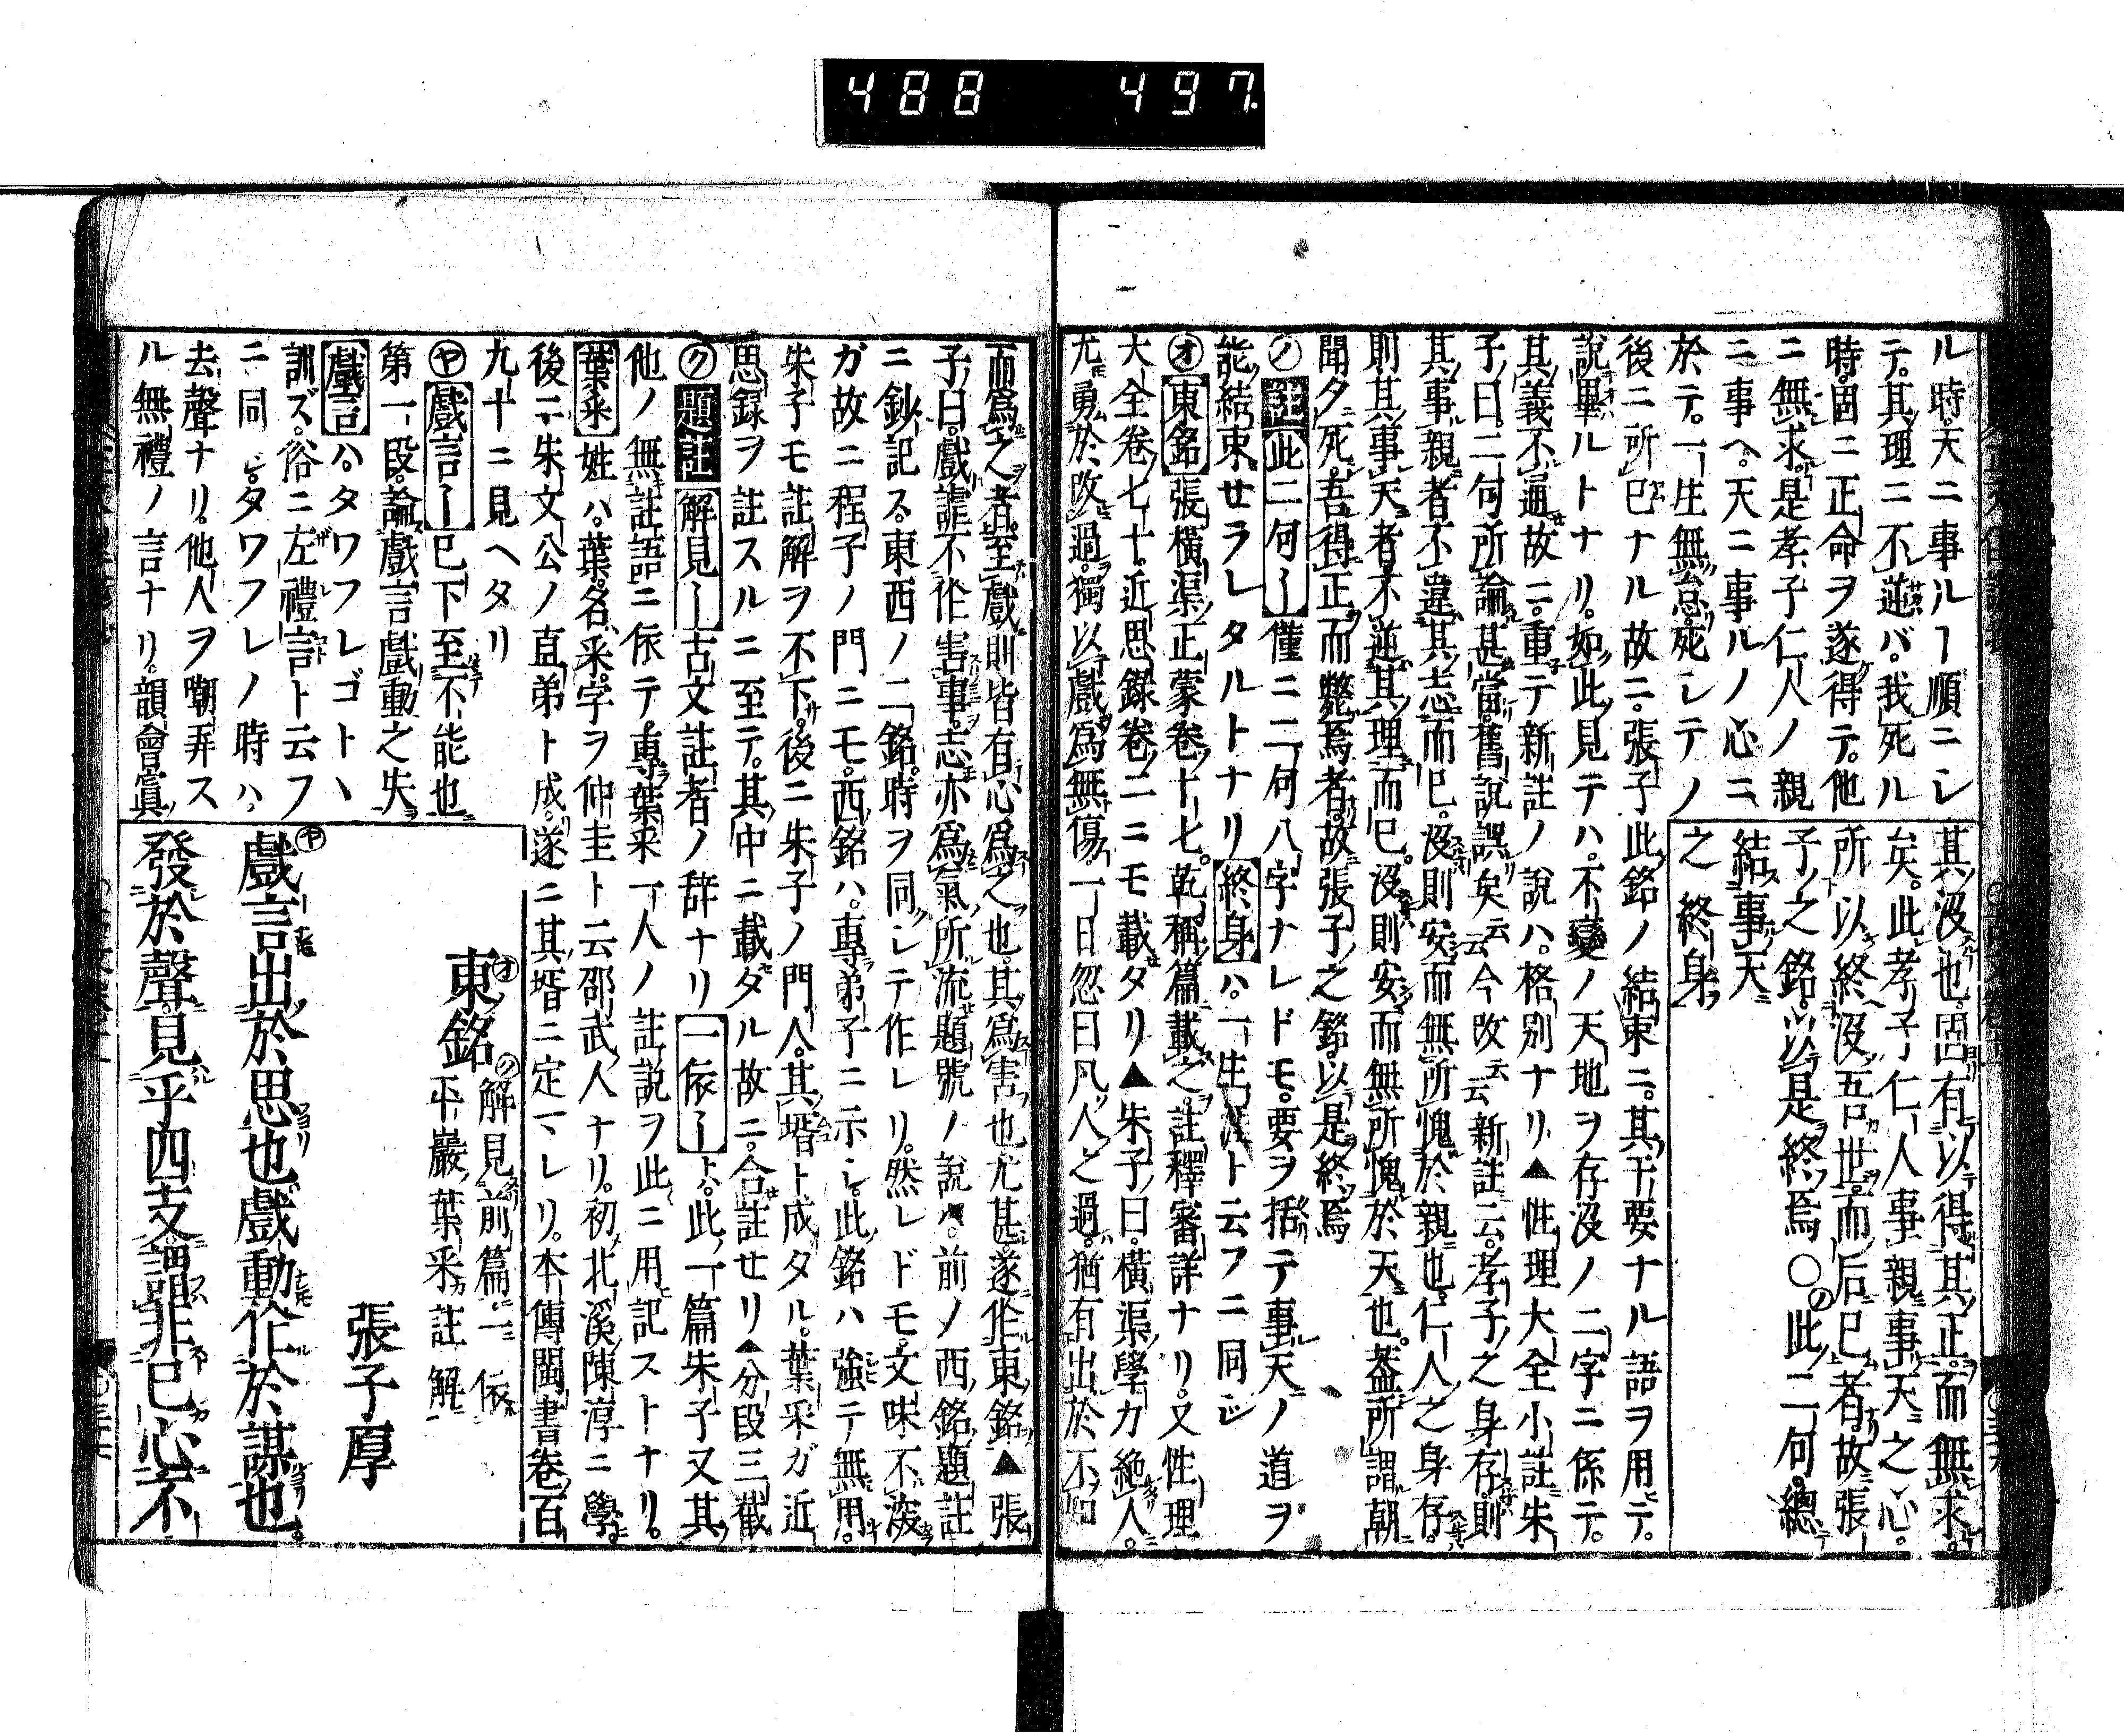 488 497
ル時。天ニ事ルヿ順ニシ
テ。其理ニ不逆バ。我死ル
時。固ニ正命ヲ遂得テ。他
ニ無求。是孝子仁人ノ親
ニ事ヘ。天ニ事ルノ心ニ
於テ。一生無怠。死シテノ
其沒也固有以得其正。而無求。
矣。此孝子仁人事親事天之心。
所以終沒吾世而后已者。故張
子之銘。以是終焉○此二句。總
結事天
之終身
後ニ所已ナル故ニ。張子此銘ノ結束ニ。其干要ナル語ヲ用テ。
說畢ルトナリ。如此見テハ。不變ノ天地ヲ存沒ノ二字ニ係テ。
其義不通故ニ。重テ新註ノ說ハ。格別ナリ▲性理大全小註朱
子曰。二句所論甚當。舊說誤矣云云今改云云新註云。孝子之身存。則
其事親者不違其志而已。沒則安而無所愧於親也。仁人之身存。
則其事天者不逆其理而已。沒則安而無所愧於天也。蓋所謂朝
聞夕死。吾得正而斃焉者。故張子之銘。以是終焉
㋨註此二句ー僅ニ二句八字ナレドモ。要ヲ括テ事天ノ道ヲ
能結束セラレタルトナリ終身ハ。一生涯ト云フニ同シ
㋔東銘張橫渠正蒙卷十七。乾稱篇載之。註釋審詳ナリ。又性理
大全卷七十。近思錄卷二ニモ載タリ▲朱子曰。橫渠學力絶人。
尤勇於改過。獨以戲爲無傷。一日忽曰凡人之過。猶有出於不知
而爲之者。至戲則皆有心爲之也。其爲害也尤甚。遂作東銘▲張
子曰。戲謔不作害事。志亦爲氣所流題號ノ說ハ。前ノ西銘題註
ニ鈔記ス。東西ノ二銘。時ヲ同シテ作レリ。然レドモ。文味不深
ガ故ニ程子ノ門ニモ。西銘ハ。專弟子ニ示シ。此銘ハ強テ無用。
朱子モ註解ヲ不下。後ニ朱子ノ門人。其壻ト成タル。葉采ガ近
思録ヲ註スルニ至テ。其中ニ載タル故ニ。合註セリ▲分段三截
㋗題註解見ー古文註者ノ辞ナリ一依ーハ。此一篇朱子又其
他ノ無註語ニ依テ。專葉采一人ノ註說ヲ此ニ用記ストナリ。
葉采姓ハ。葉。名采。字ヲ仲圭ト云邵武人ナリ。初北溪陳淳ニ學
後ニ朱文公ノ直弟ト成。遂ニ其壻ニ定マレリ。本傳閩書卷百
九十ニ見ヘタリ
㋳戲言ー已下至不能也
第一段。論戲言戲動之失
戲言ハ。タワフレゴトヽ
訓ズ。俗ニ左禮言ト云フ
ニ同シ。タワフレノ時ハ。
去聲ナリ。他人ヲ嘲弄ス
ル無禮ノ言ナリ。韻會賓
東銘 解見前篇。一依
平巖葉采註解
張子厚
戲言出於思也戲動作於謀也
發於聲見乎四支謂非己心不